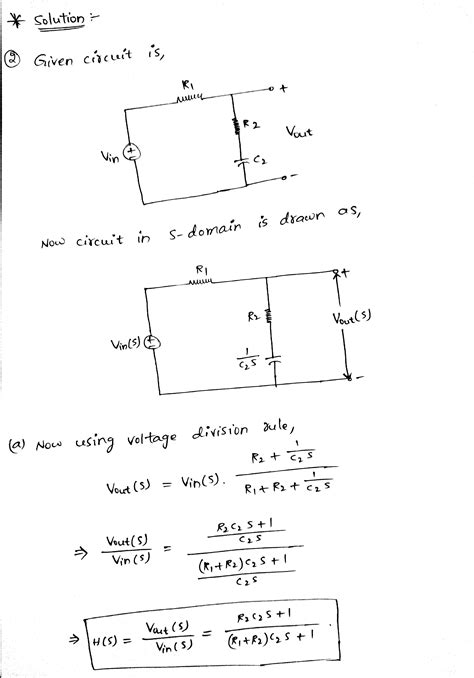 * Solution :-
② Given circuit is,
R1
+
R2
Vout
Vin
+
C2
-
Now circuit in S-domain is drawn as,
R1
+
R2
Vout(s)
Vin(s)
1/C2S
-
(a) Now using voltage division rule,
Vout(s) = Vin(s). (R2 + 1/C2S) / (R1 + R2 + 1/C2S)
⇒ Vout(s)/Vin(s) = ((R2C2S+1)/C2S) / (((R1+R2)C2S+1)/C2S)
⇒ H(s) = Vout(s)/Vin(s) = (R2C2S+1) / ((R1+R2)C2S+1).